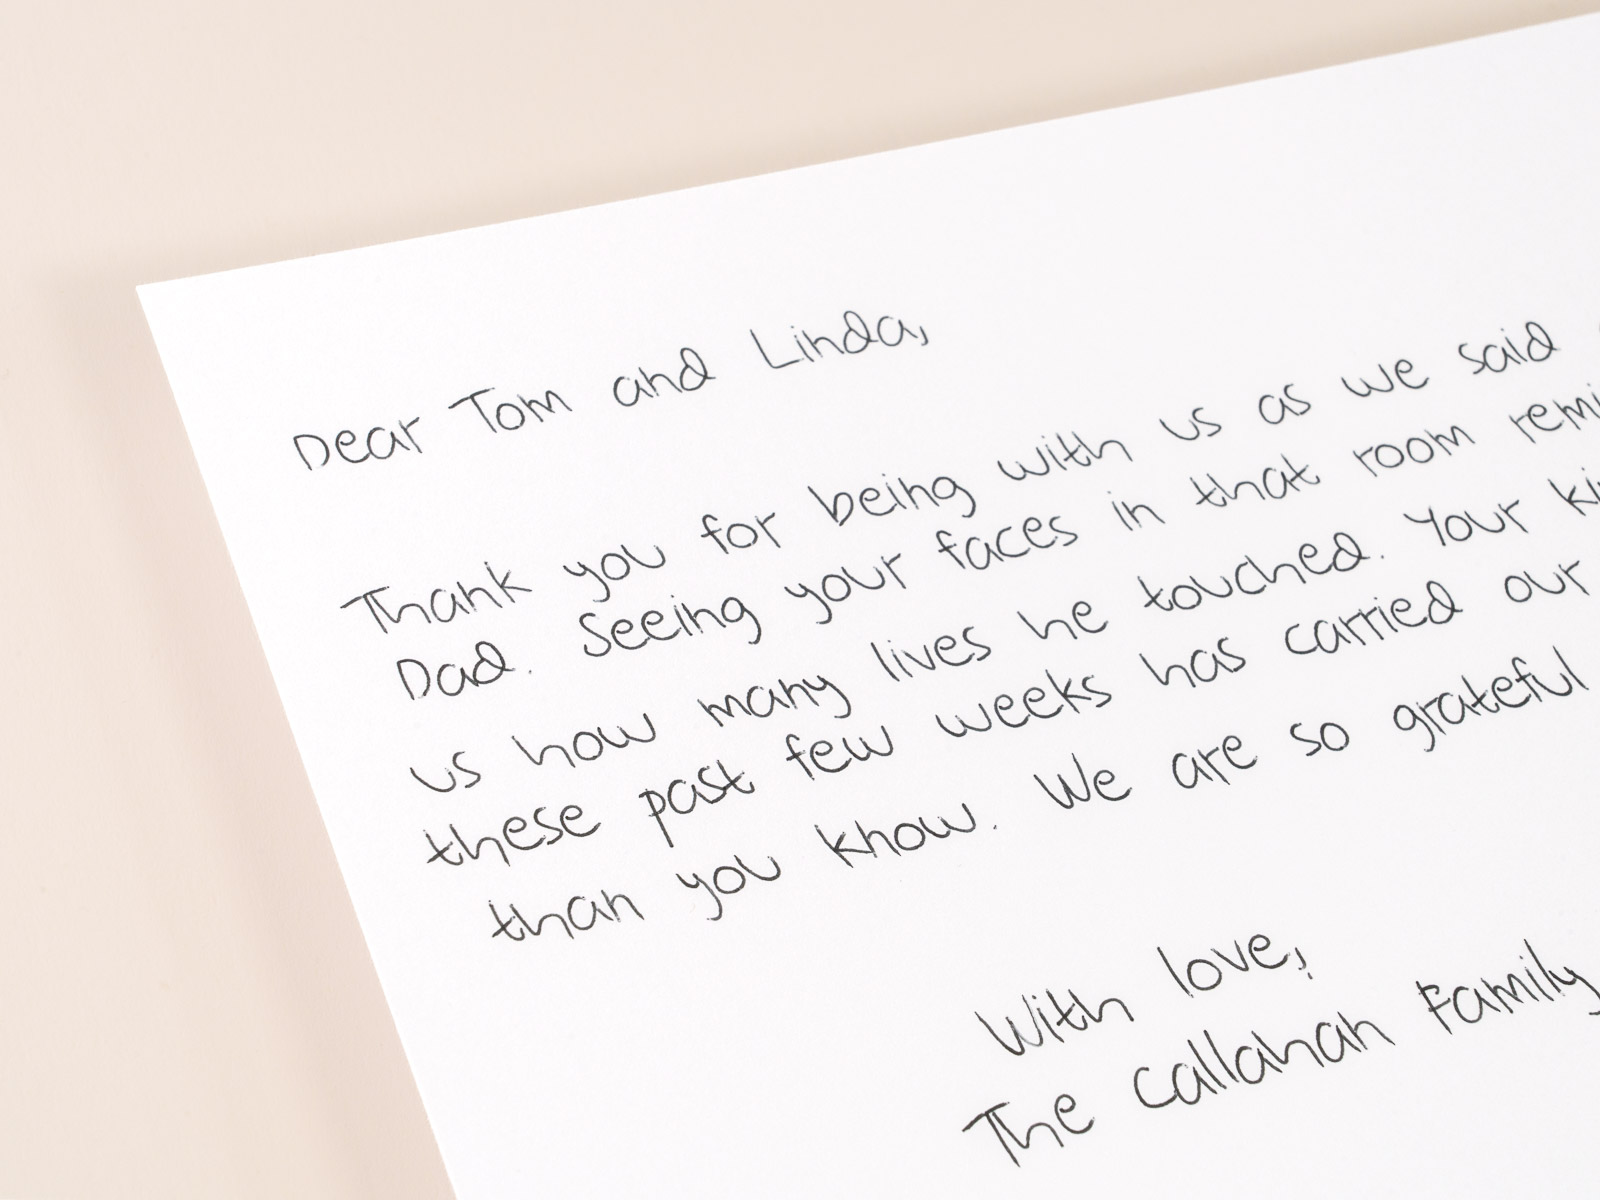 Dear Tom and Linda,
Thank you for being with us as we said
Dad. Seeing your faces in that room
us how many lives he touched. Your
these past few weeks has carried our
than you know. We are so grateful
With love,
The Callahan Family